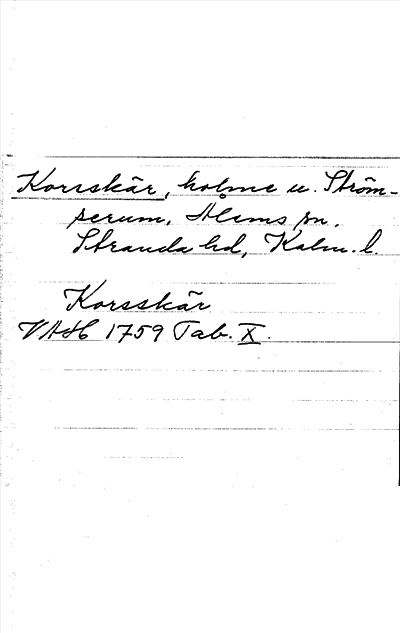 Korrskär, holme u. Ström-
serum, Ålems sn.
Stranda hd, Kalm. l.
Korsskär
VAH 1759 Tab. X.